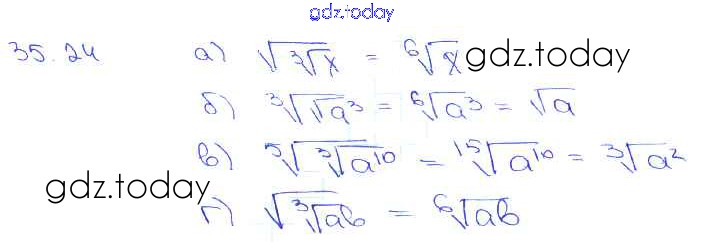 gdz.today
35.24 а) √∛x = ⁶√x gdz.today
б) ∛√a³ = ⁶√a³ = √a
в) ⁵√∛a¹⁰ = ¹⁵√a¹⁰ = ∛a²
gdz.today
г) √∛ab = ⁶√ab